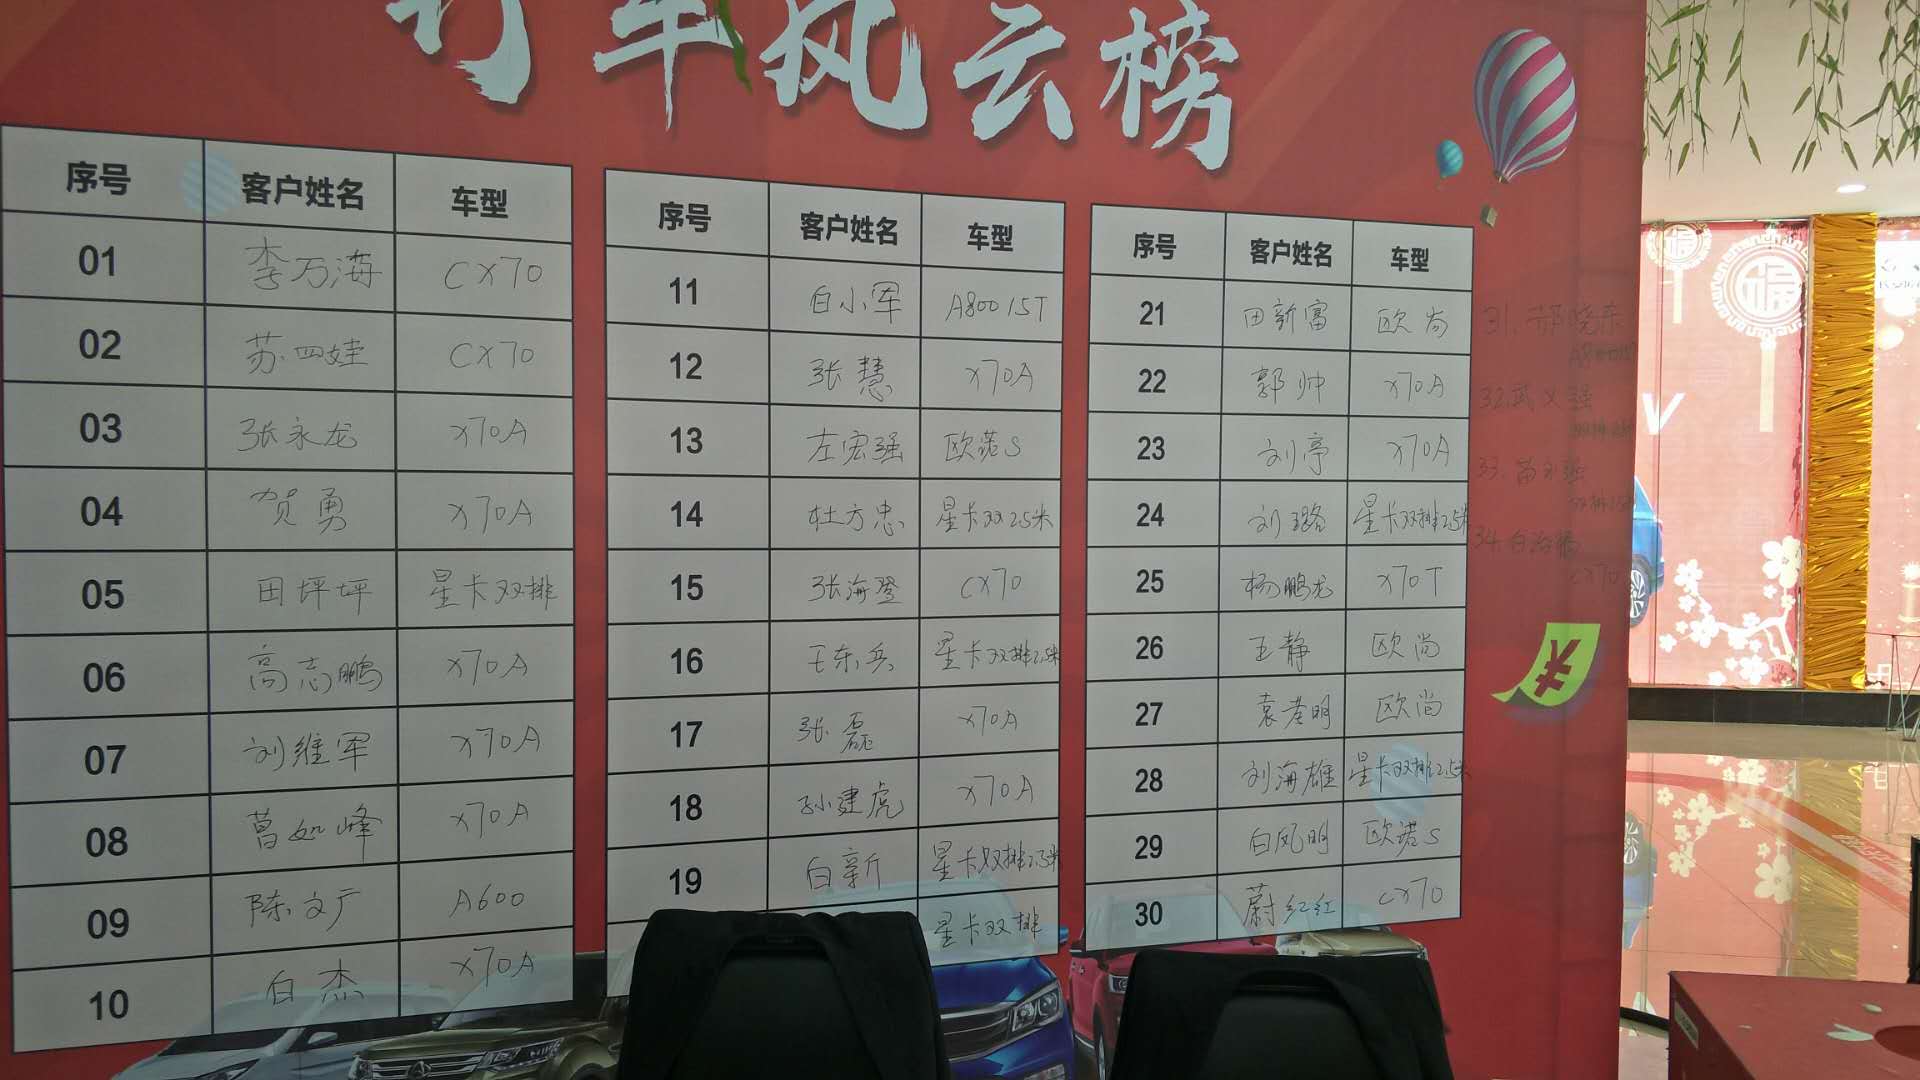 订车风云榜
序号 客户姓名 车型
01 李万海 CX70
02 苏四娃 CX70
03 张永龙 X70A
04 贺勇 X70A
05 田坪坪 星卡双排
06 高志鹏 X70A
07 刘维军 X70A
08 X70A
09 陈文广 A600
10 白杰 X70A
序号 客户姓名 车型
11 白小军 A800 1.5T
12 张慧 X70A
13 左宏强 欧诺S
14 杜方忠 星卡双2.5米
15 张海登 CX70
16 王东兵 星卡双排2.5米
17 张磊 X70A
18 孙建虎 X70A
19 白新 星卡双排2.5米
星卡双排
序号 客户姓名 车型
21 田新富 欧尚
22 郭帅 X70A
23 刘亭 X70A
24 刘璐 星卡双排2.5米
25 杨鹏龙 X70T
26 王静 欧尚
27 欧尚
28 刘海雄 星卡双排2.5米
29 白凤明 欧诺S
30 蔚红红 CX70
31. 郝晓东
32. 武义强
33.
34.
CX70
¥
福
福
V